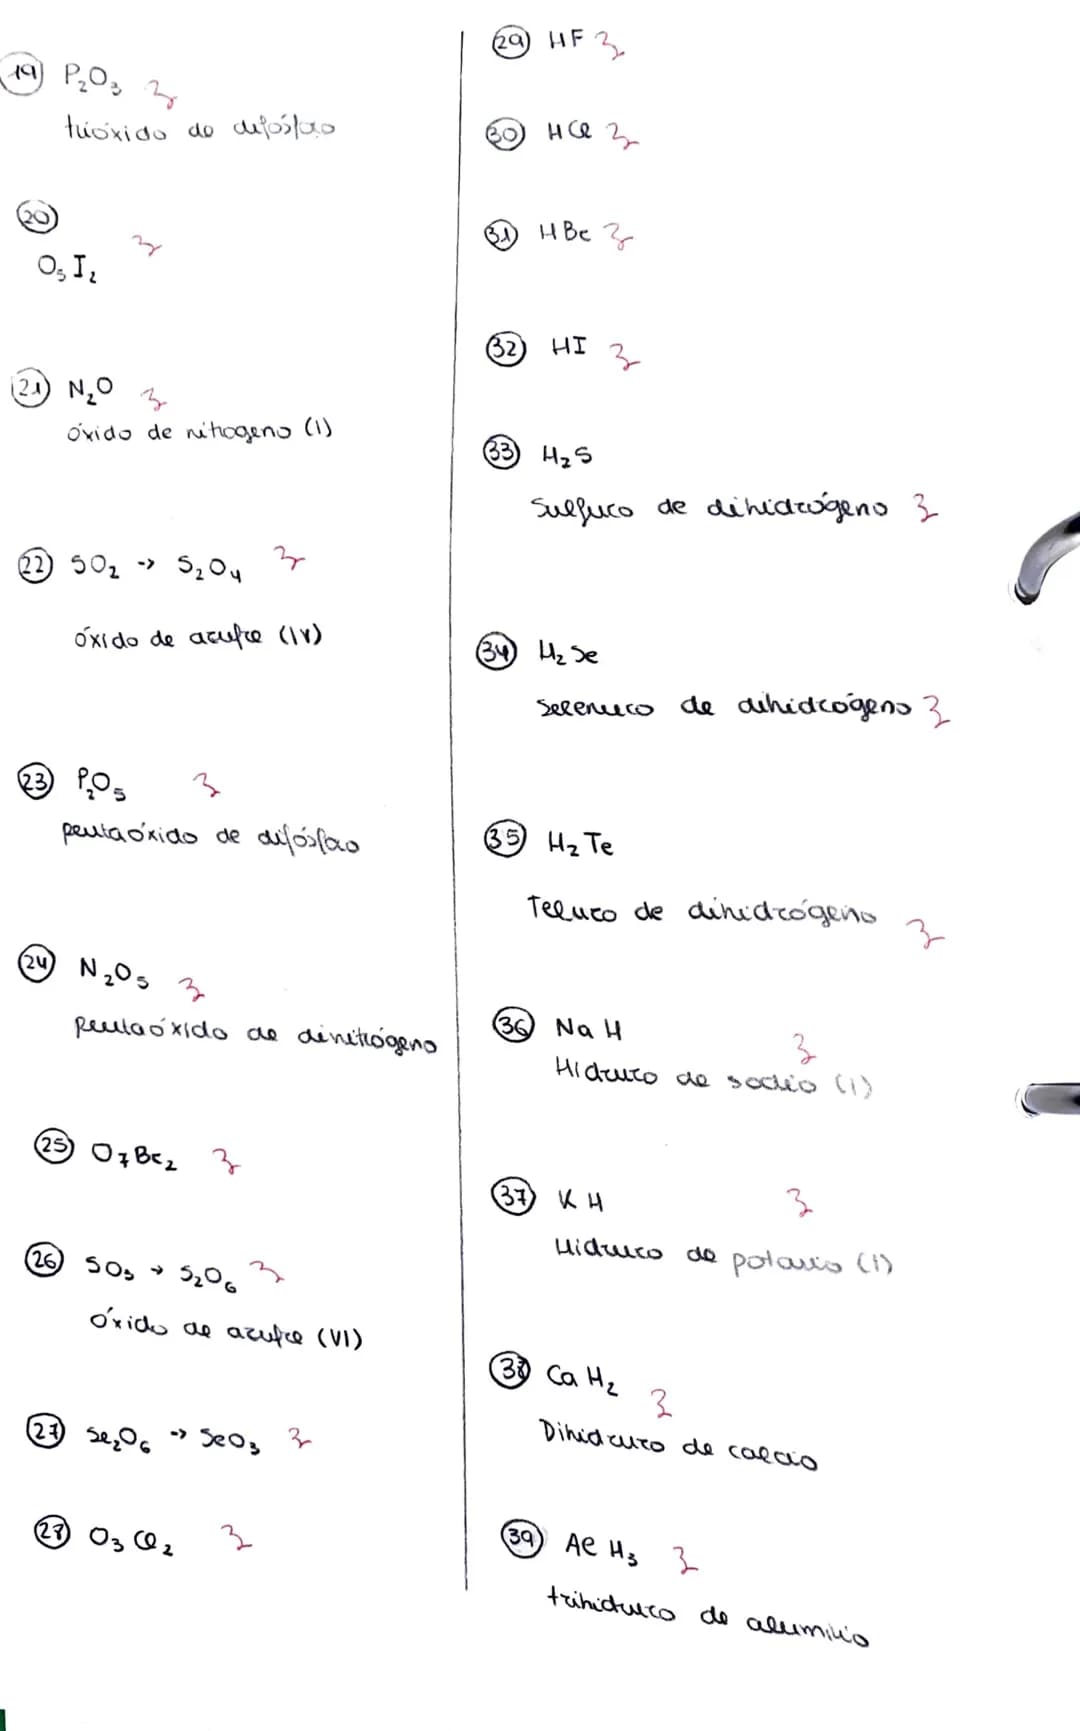 19 P₂O₃
trióxido de difósforo
20
O₅I₂
21 N₂O
óxido de nitrogeno (I)
22 SO₂ -> S₂O₄
óxido de azufre (IV)
23 P₂O₅
pentaóxido de difósforo
24 N₂O₅
pentaóxido de dinitrógeno
25 O₇Br₂
26 SO₃ → S₂O₆
óxido de azufre (VI)
27 Se₂O₆ -> SeO₃
28 O₃Cl₂
29 HF
30 HCl
31 HBr
32 HI
33 H₂S
Sulfuro de dihidrógeno
34 H₂Se
Selenuro de dihidrógeno
35 H₂Te
Teluro de dihidrógeno
36 NaH
Hidruro de sodio (I)
37 KH
Hidruro de potasio (I)
38 CaH₂
Dihidruro de calcio
39 AlH₃
trihidruro de aluminio